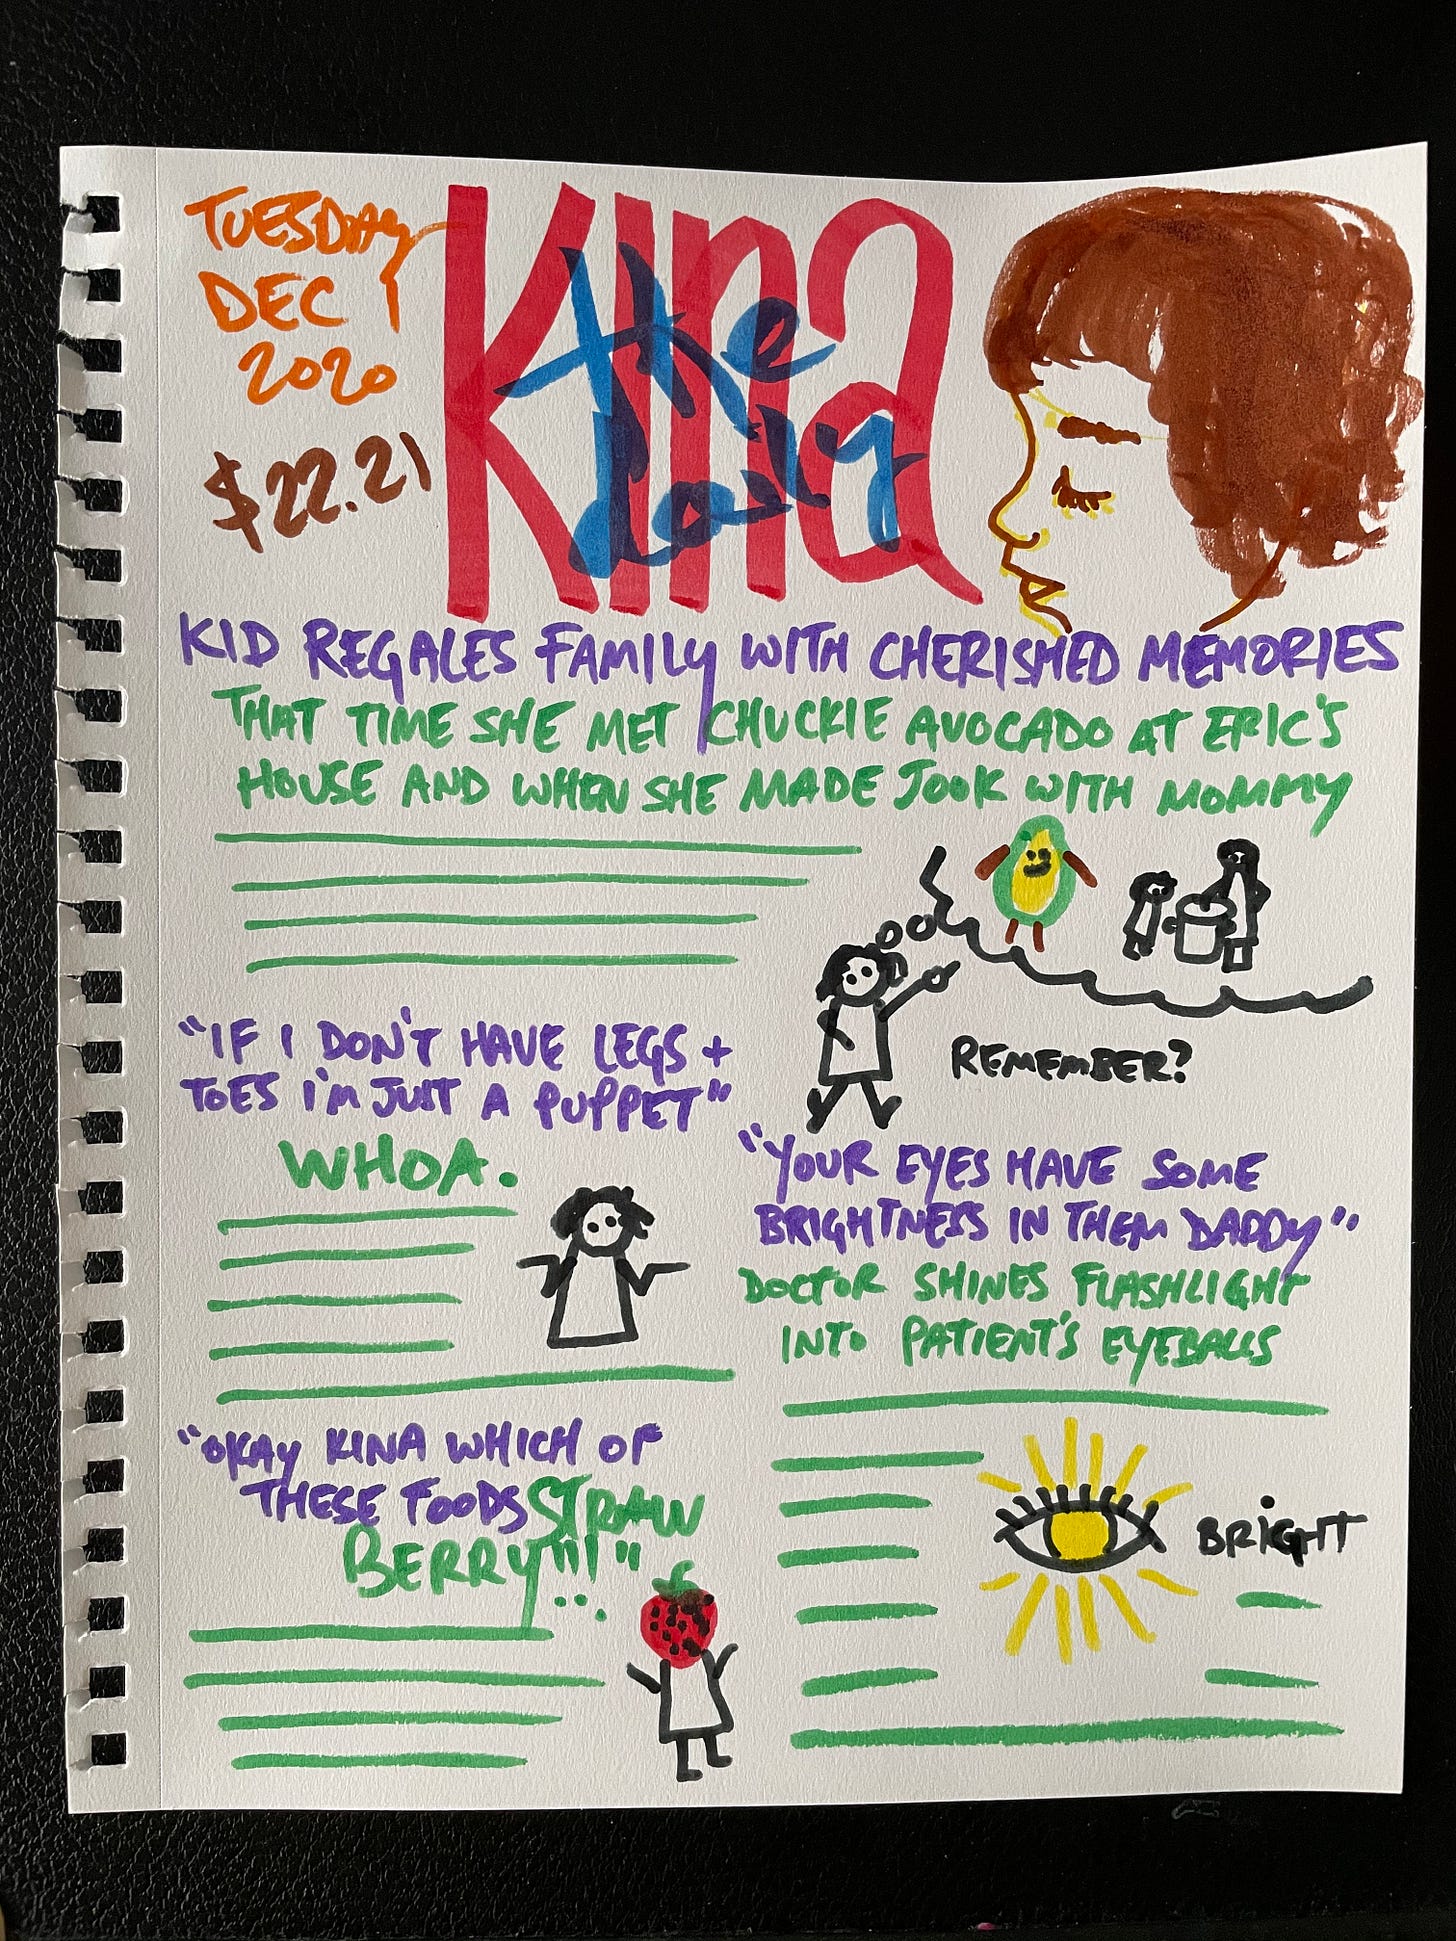 TUESDAY
DEC 1
2020
$22.21
Kina
the
daily
KID REGALES FAMILY WITH CHERISHED MEMORIES
THAT TIME SHE MET CHUCKIE AVOCADO AT ERIC'S
HOUSE AND WHEN SHE MADE JOOK WITH MOMMY
REMEMBER?
"IF I DON'T HAVE LEGS +
TOES I'M JUST A PUPPET"
WHOA.
"YOUR EYES HAVE SOME
BRIGHTNESS IN THEM DADDY"
DOCTOR SHINES FLASHLIGHT
INTO PATIENT'S EYEBALLS
BRIGHT
"OKAY KINA WHICH OF
THESE FOODS STRAW
BERRY!!!"...